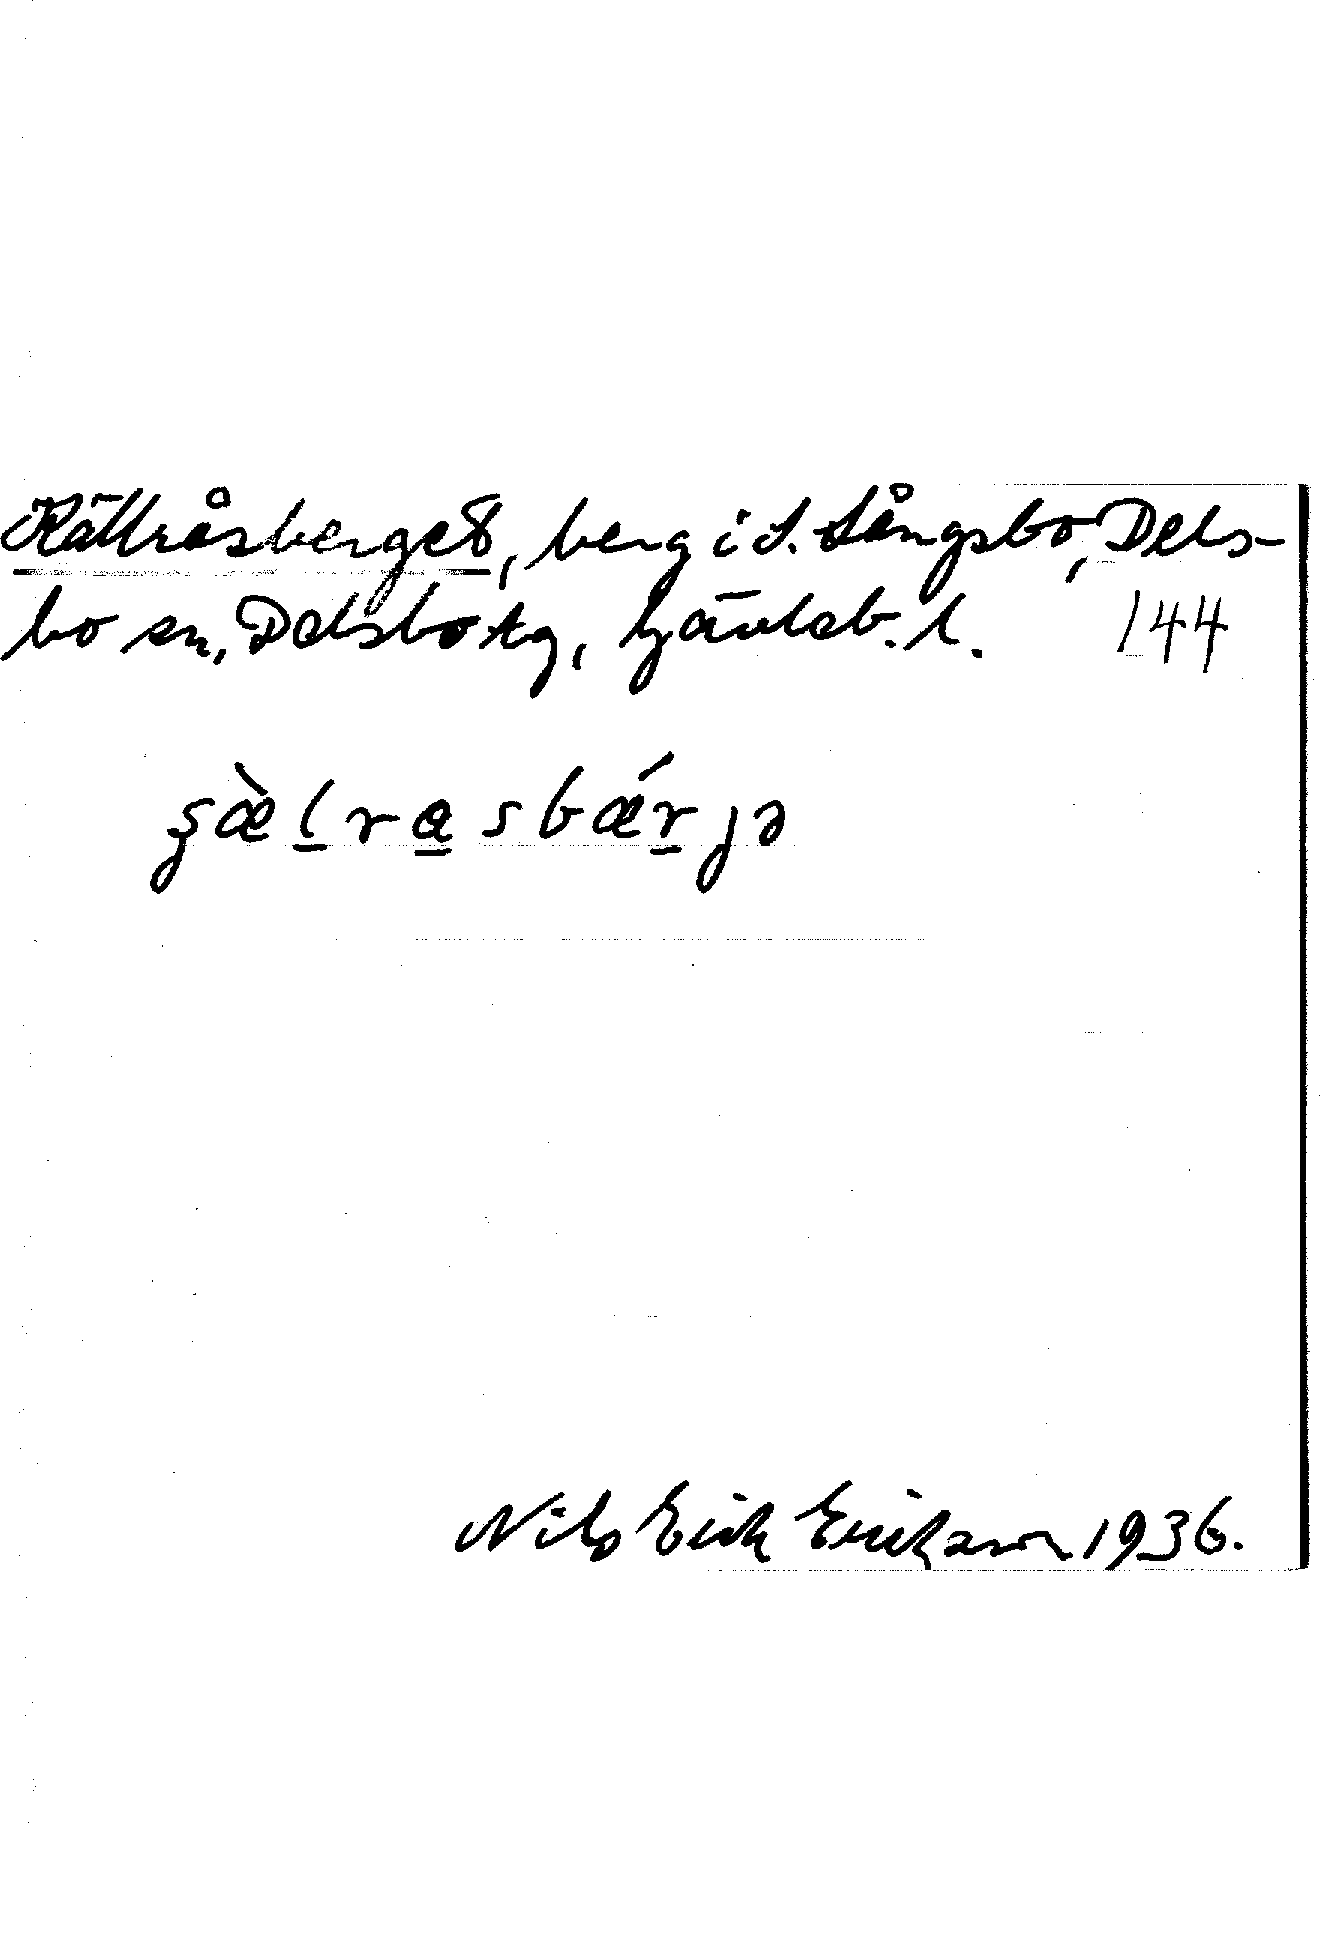 Källråsberget, berg i S. Långsbo, Dels-
bo sn, Delsbo tg, Gävleb. l. 144
Nils Erik Erikson 1936.